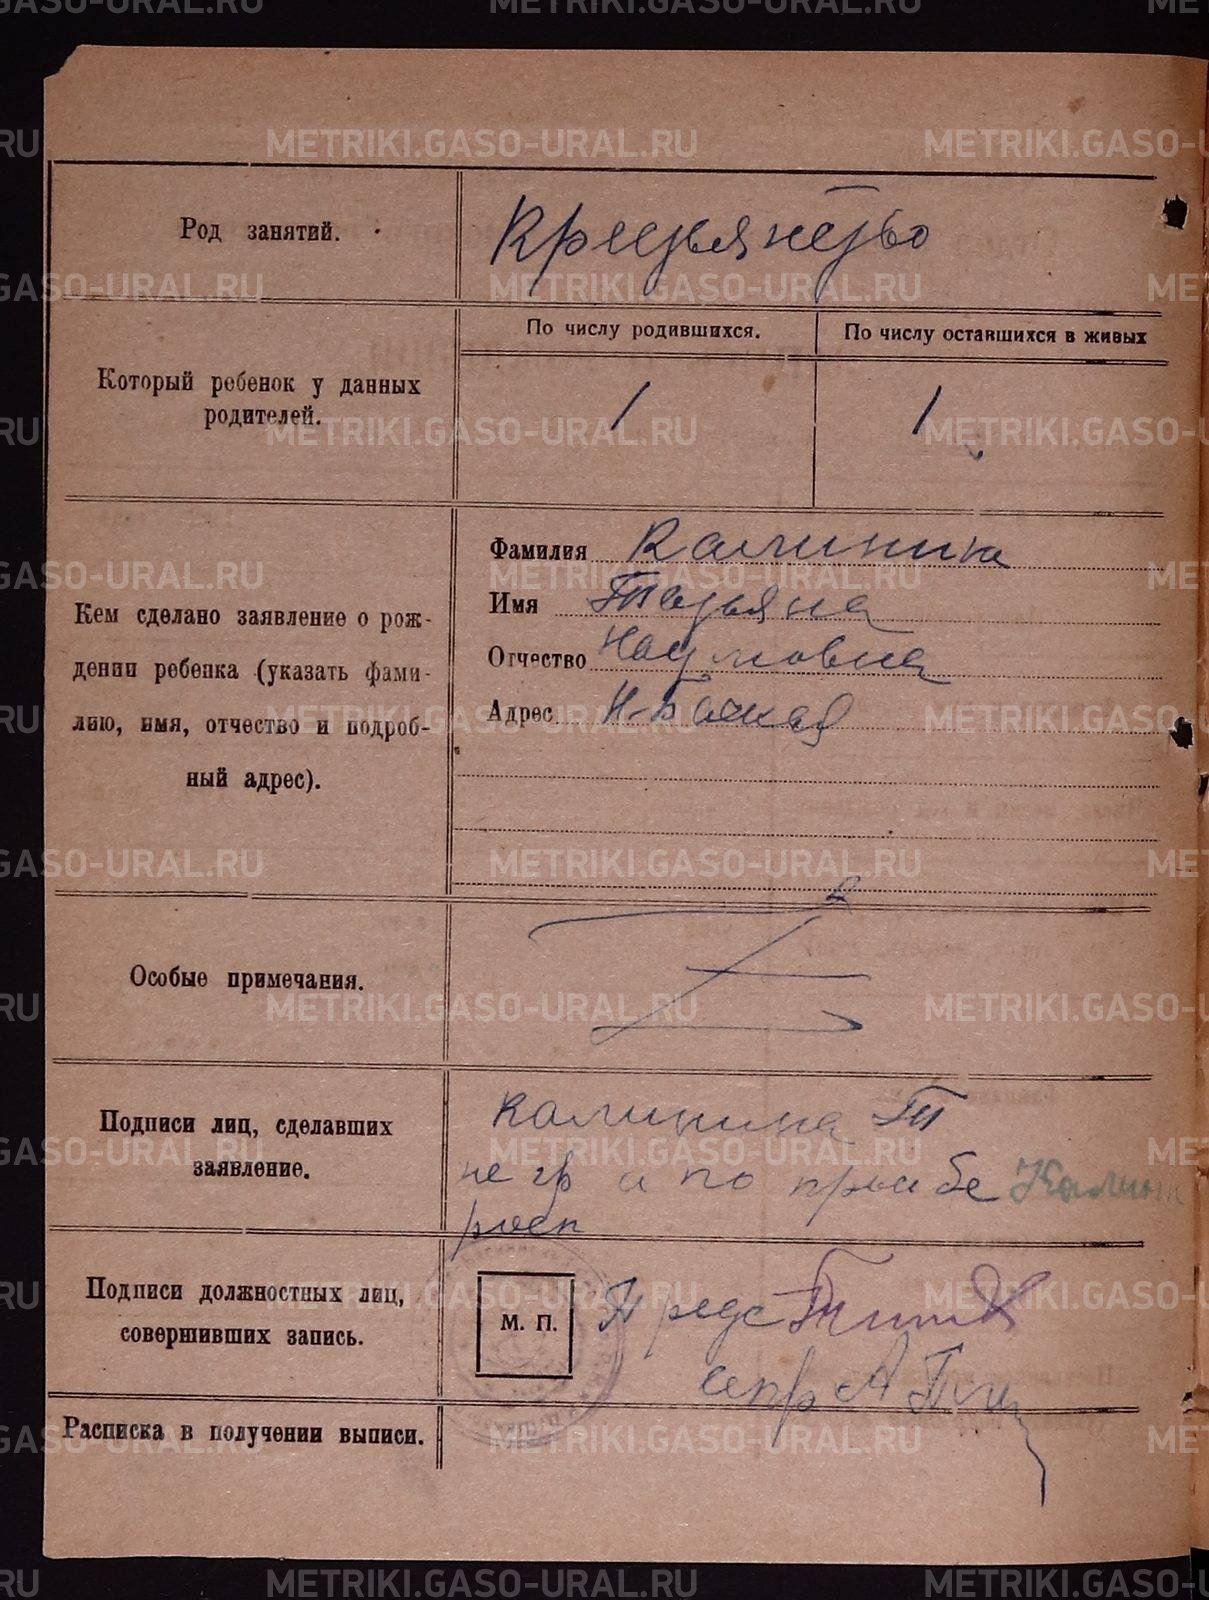 Род занятий.
Крестьянство
Который ребенок у данных
родителей.
По числу родившихся.
По числу оставшихся в живых
1
1
Кем сделано заявление о рож-
дении ребенка (указать фами-
лию, имя, отчество и подроб-
ный адрес).
Фамилия Калинина
Имя Татьяна
Отчество Наумовна
Адрес Н-
Особые примечания.
Z
Подписи лиц, сделавших
заявление.
Калинина Т
не гр а по прозбе
росп
Подписи должностных лиц,
совершивших запись.
М. П.
Предс Титов
А
Расписка в получении выписи.
METRIKI.GASO-URAL.RU